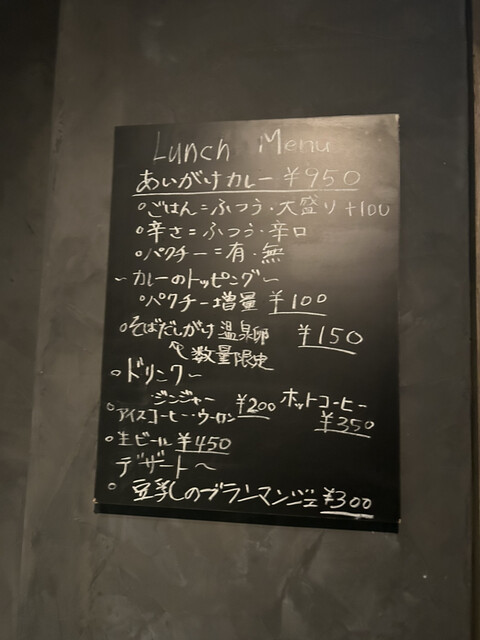 Lunch Menu
あいがけカレー ¥950
○ごはん=ふつう・大盛り+100
○辛さ=ふつう・辛口
○パクチー=有・無
〜カレーのトッピング〜
○パクチー増量 ¥100
○そばだしがけ温泉卵 ¥150
数量限定
○ドリンク〜
ジンジャー
○アイスコーヒー・ウーロン ¥200 ホットコーヒー ¥350
○生ビール ¥450
デザート〜
○豆乳のブランマンジェ ¥300